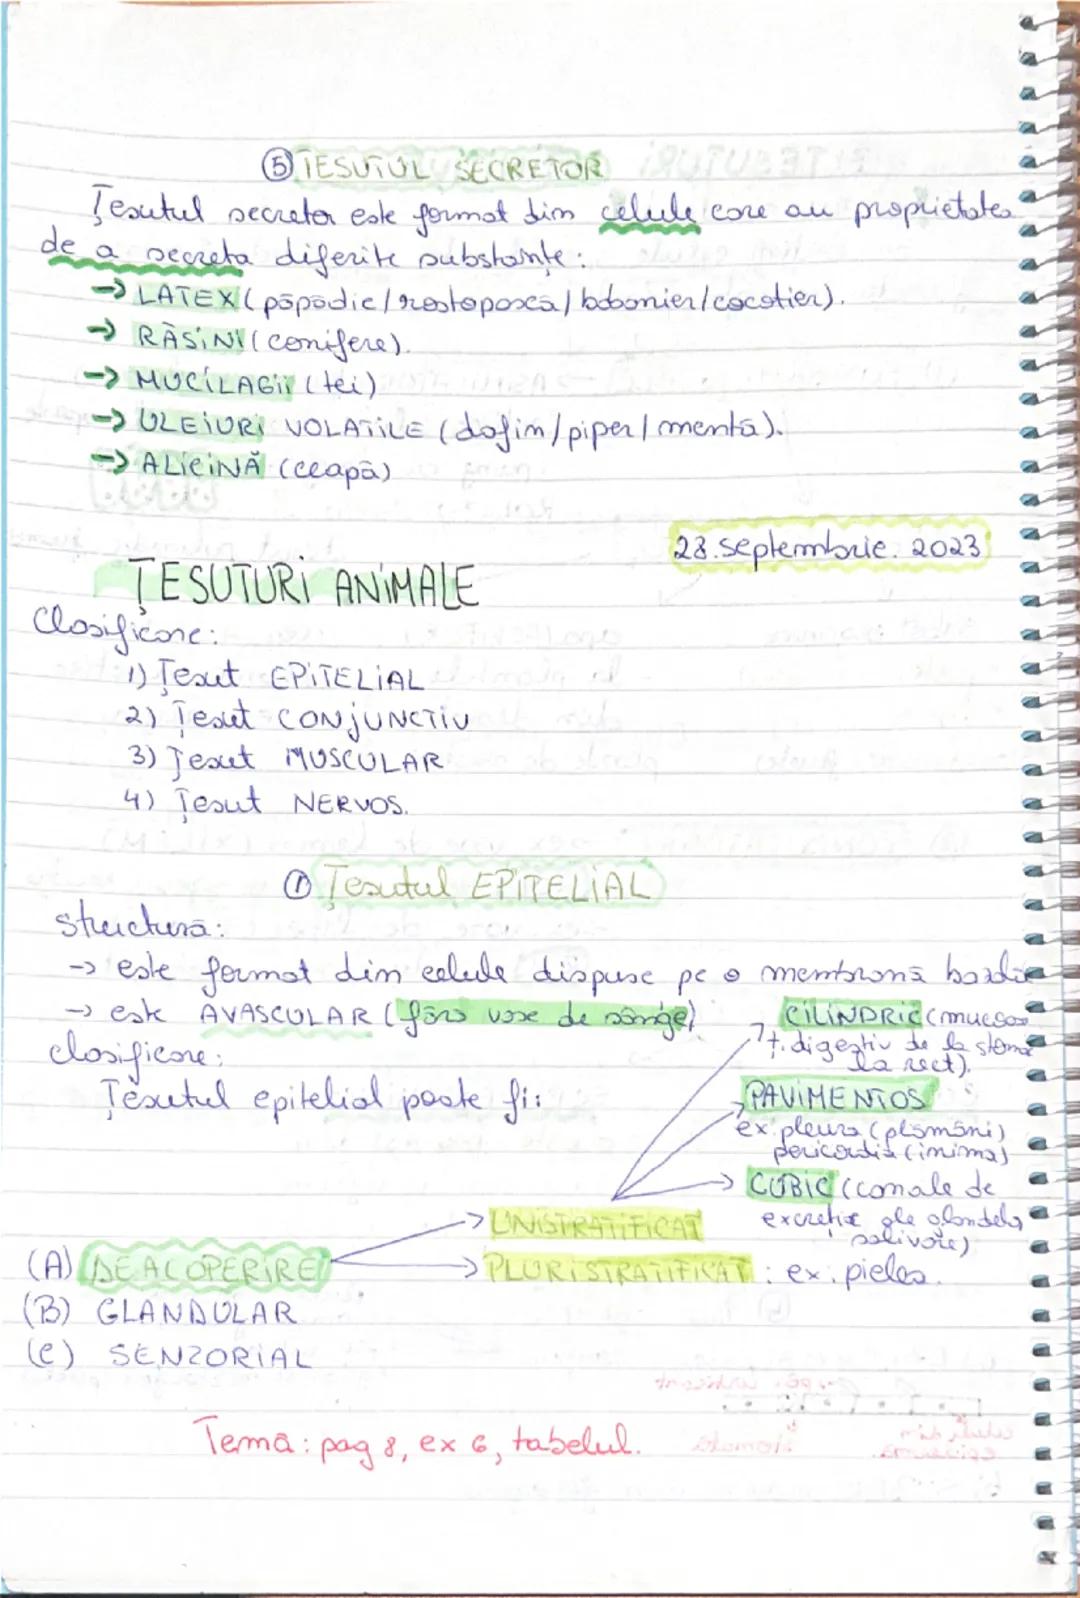 ⑤ ȚESUTUL SECRETOR
Țesutul secretor este format din celule care au proprietatea
de a secreta diferite substanțe:
→ LATEX (păpădie/rostopască/bobonier/cocotier).
→ RĂȘINI (conifere).
→ MUCILAGII (tei)
→ ULEIURI VOLATILE (dafin/piper/mentă).
→ ALICINĂ (ceapă)
28.septembrie. 2023
ȚESUTURI ANIMALE
Clasificare:
1) Țesut EPITELIAL
2) Țesut CONJUNCTIV
3) Țesut MUSCULAR
4) Țesut NERVOS.
① Țesutul EPITELIAL
structură:
→ este format din celule dispuse pe o membrană bazală
→ este AVASCULAR (fără vase de sânge)
clasificare:
Țesutul epitelial poate fi:
CILINDRIC (mucoasa
t. digestiv de la stomac
la rect).
PAVIMENTOS
ex: pleura (plămâni)
pericardia (inima)
→ CUBIC (canale de
excreție ale glandelor
salivare)
→ UNISTRATIFICAT
(A) DE ACOPERIRE
→ PLURISTRATIFICAT : ex: pielea.
(B) GLANDULAR
(C) SENZORIAL
Temă: pag 8, ex 6, tabelul.